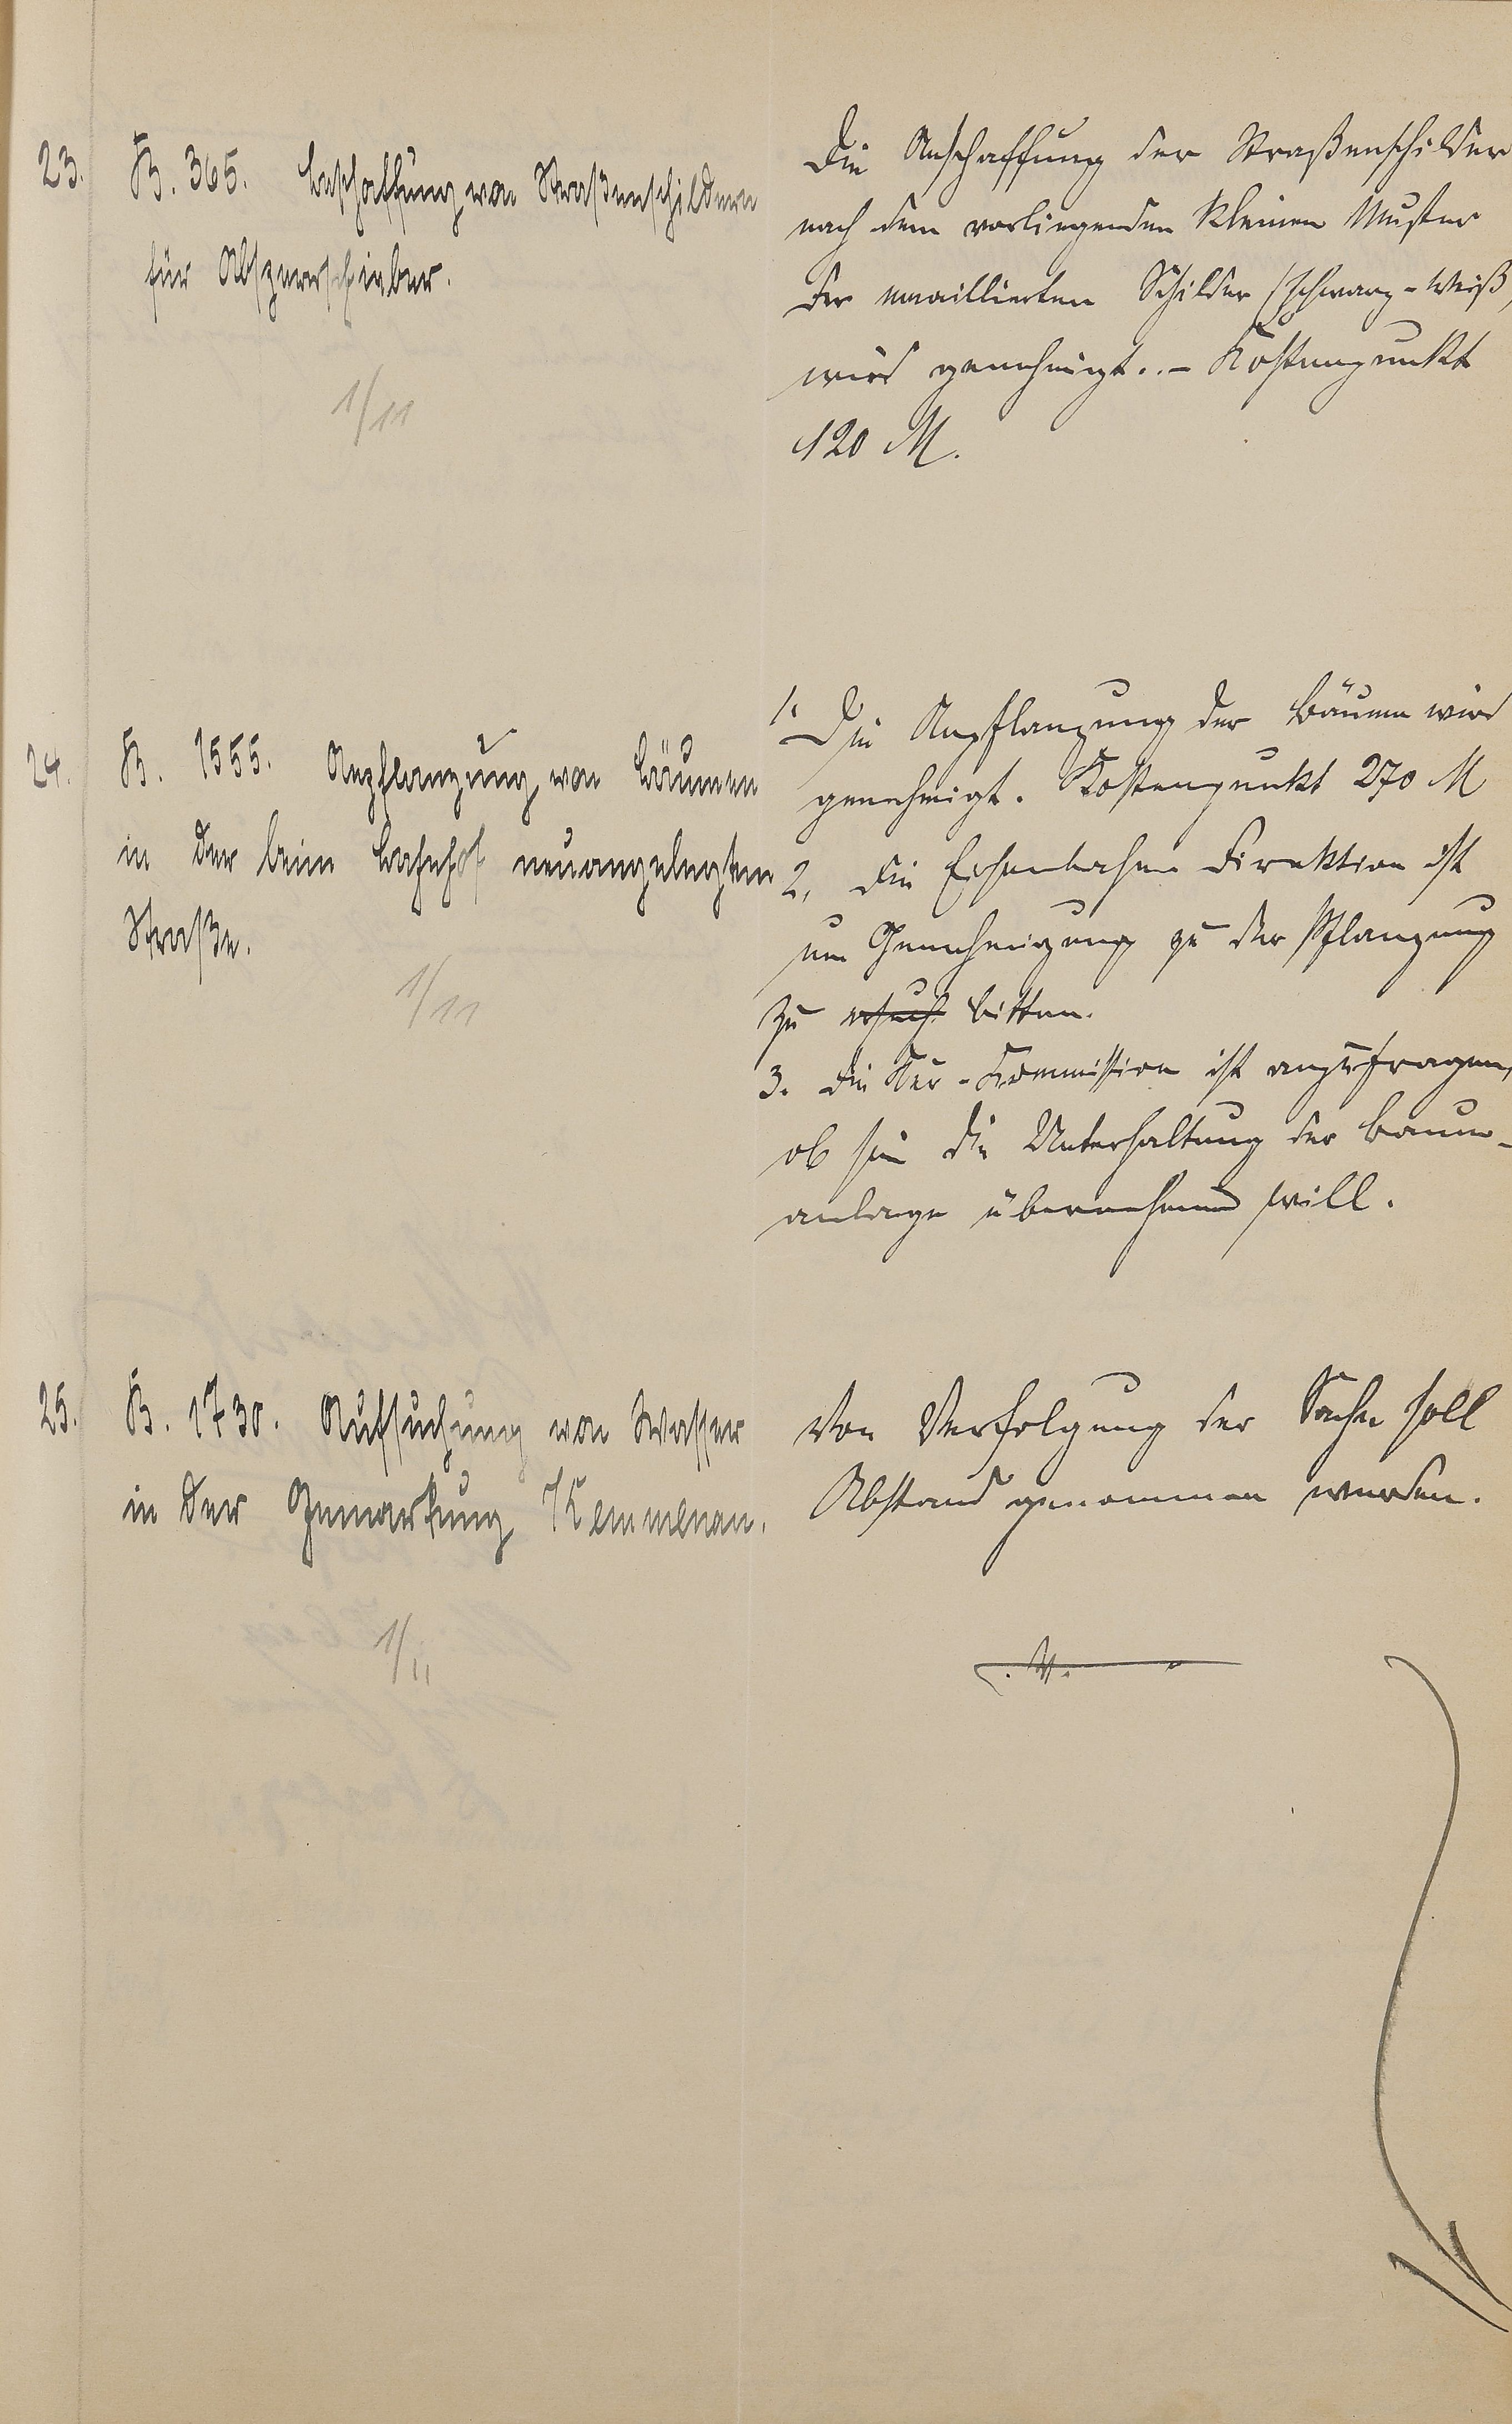 23. B. 365. Beschaffung von Straßenschildern
für Absperrschieber.
1/11
Die Anschaffung der Straßenschilder
nach dem vorliegenden kleinen Muster
der emaillierten Schilder (schwarz-weiß)
wird genehmigt. - Kostenpunkt
120 M.
24. B. 1555. Anpflanzung von Bäumen
in der beim Bahnhof neuangelegten
Straße.
1/11
1. Die Anpflanzung der Bäume wird
genehmigt. Kostenpunkt 270 M
2, die Eisenbahn Direktion ist
um Genehmigung zu der Pflanzung
zu ersuch bitten.
3. die Kur-Kommission ist anzufragen,
ob sie die Unterhaltung der Baum-
anlage übernehmen will.
25. B. 1730. Aufsuchung von Wasser
in der Gemarkung Kemmenau.
1/11
Von Verfolgung der Sache soll
Abstand genommen werden.